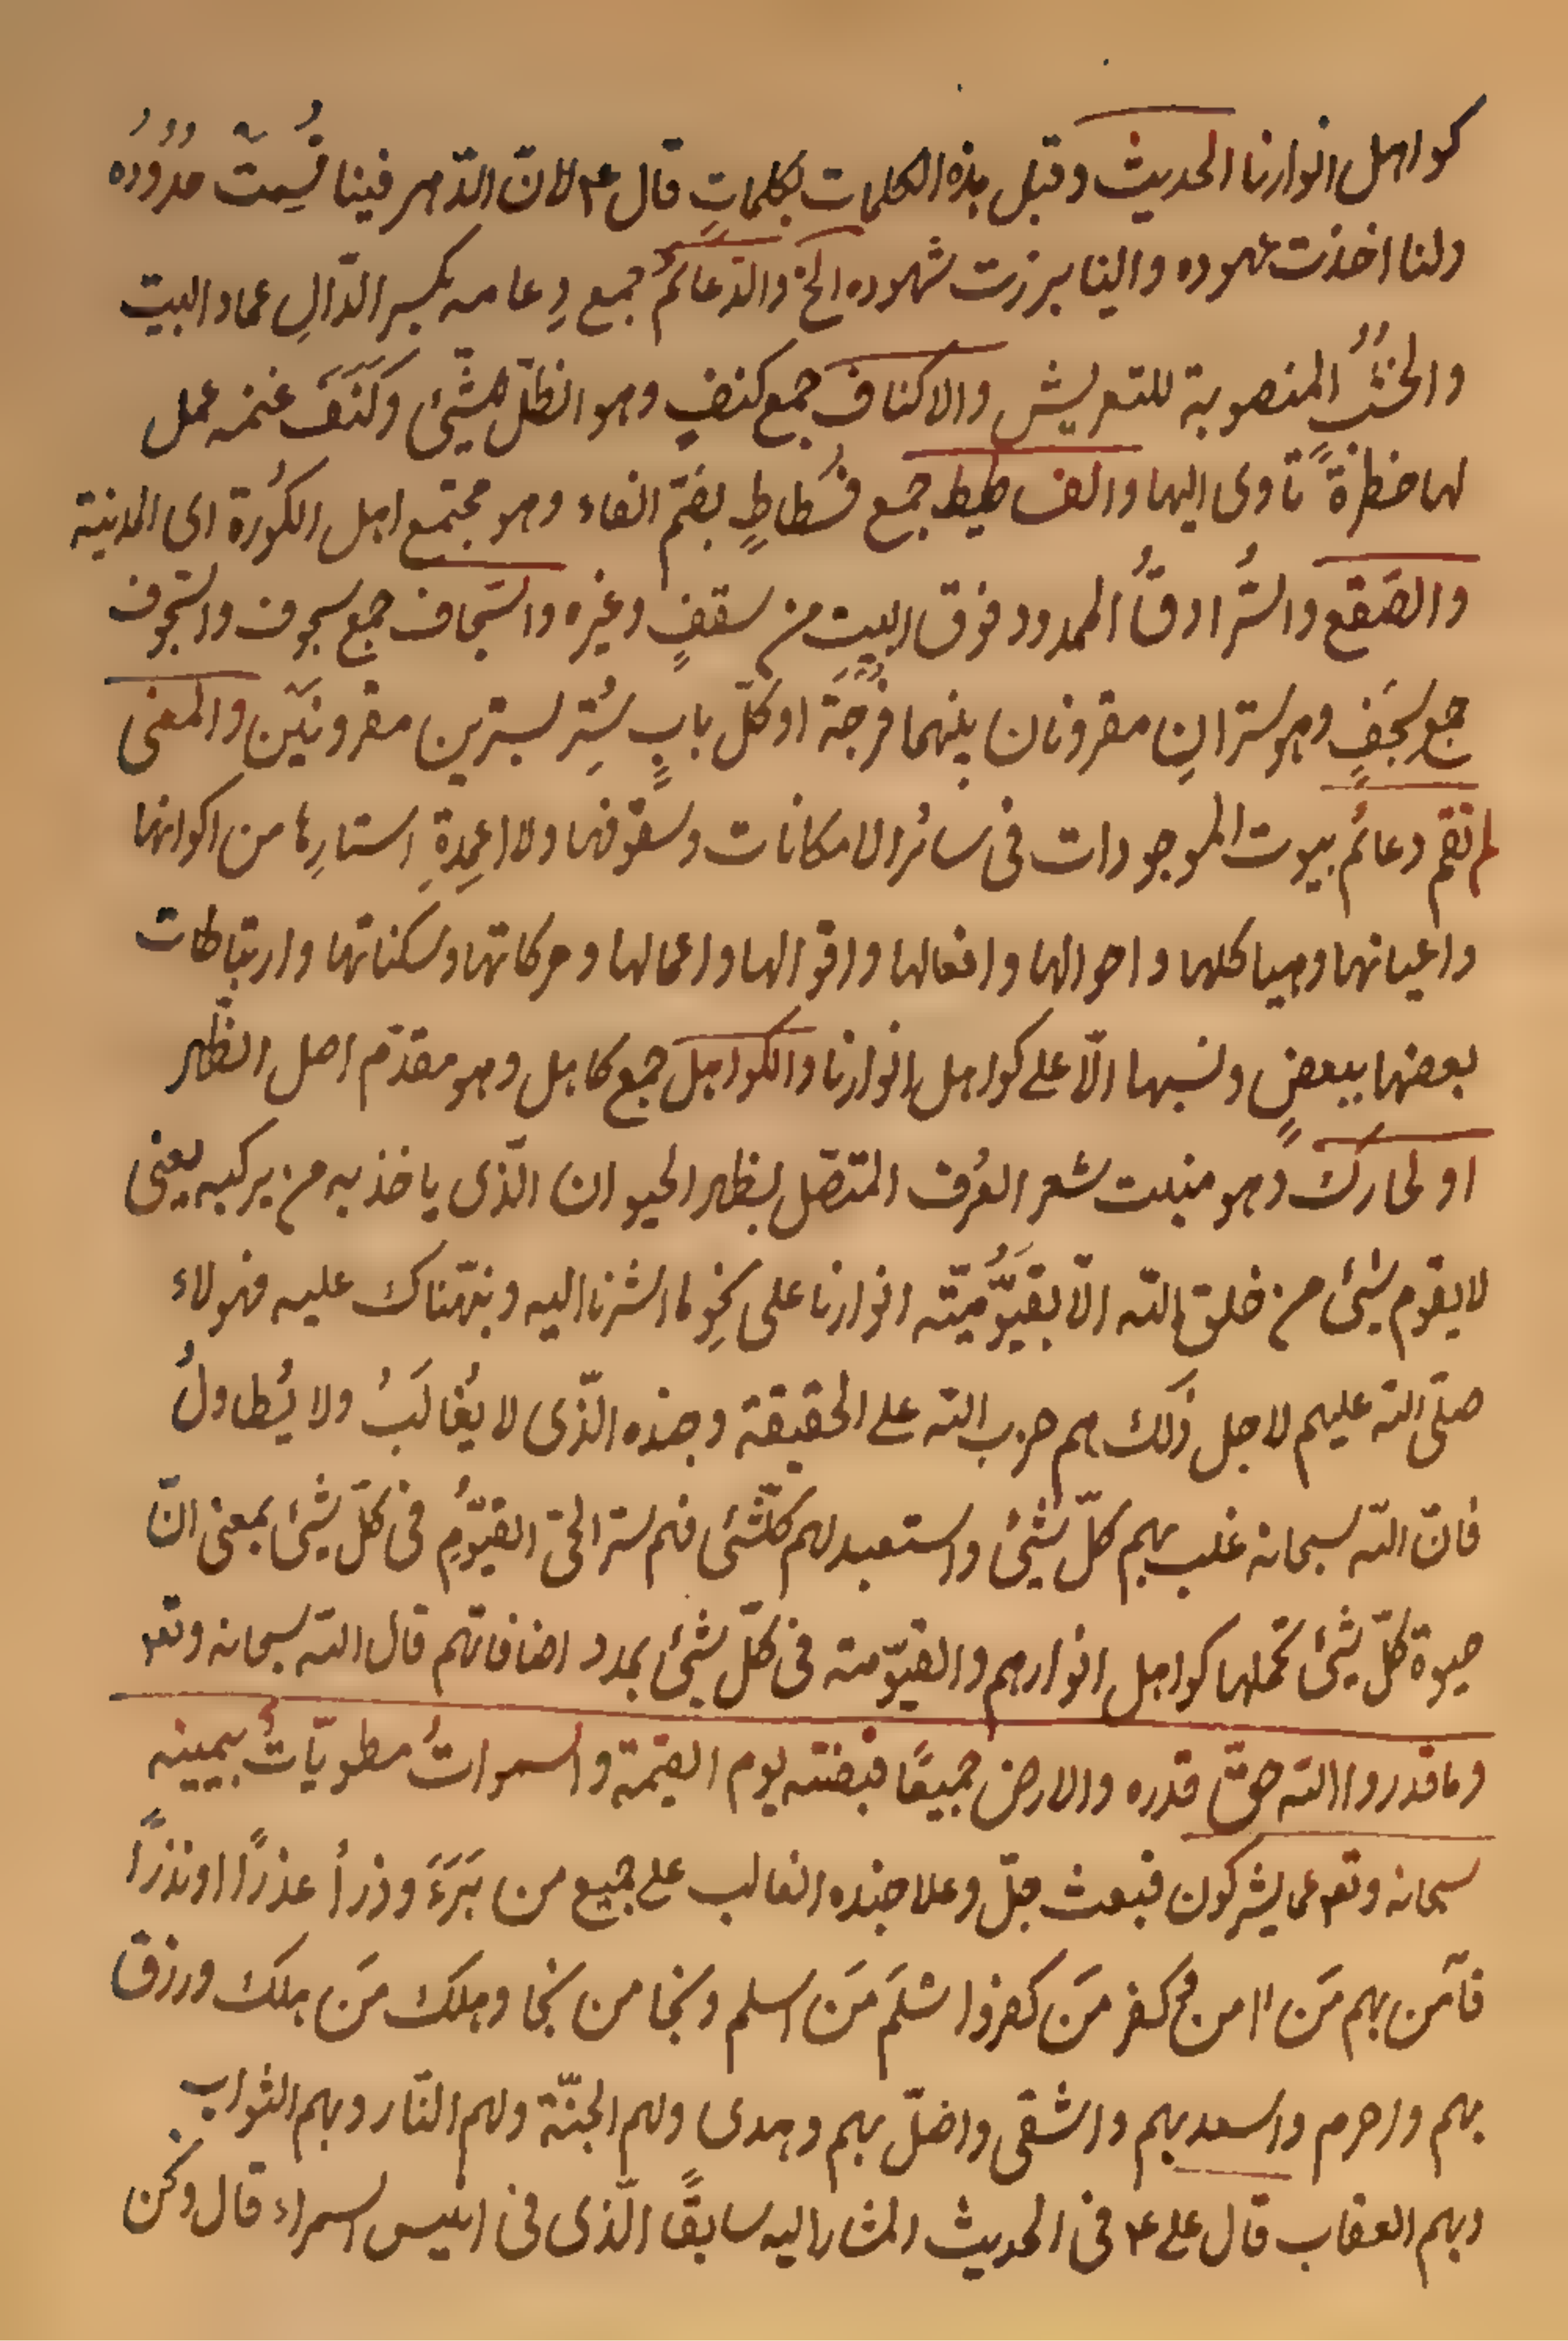 كواهل انوارنا الحديث وقبل هذه الكلمات بكلماتٍ قال ع لانّ الدّهر فينا قُسِمَتْ حدُوُدُه
ولنا اخذت عهوده والينا برزت شهوده الخ والدّعائمُ جمع دِعامه بكسر الدّالِ عماد البيت
والخشُبُ المنصوبة للتعريش والاكناف جمع كنفٍ وهو الظلّ للشّيئ وكَنَفَ غنمه عمل
لها حظرةً تاوى اليها والفساطيط جمع فُسْطاطٍ بضمّ الفاء وهو مجتمع اهل الكُورة اى المدينة
والصّقع والسُّرادقُ الممدود فوق البيتِ من سقفٍ وغيره والسّجاف جمع سجوف والسّجوف
جمع سجَفٍ وهو ستران مقرونان بينهما فرجَة او كلّ بابٍ سُتِر بسترين مقرونَين والمعنى
لم تقم دعائم بيوت الموجودات فى سائر الامكانات وسقوفها ولا اعمِدةِ استارِها من اكوانها
واعيانها وهياكلها واحوالها وافعالها واقوالها واعمالها وحركاتها وسكناتها وارتباطات
بعضها ببعضٍ ونسبها الّا على كواهل انوارنا والكواهل جمع كاهل وهو مقدّم اصل الظّهر
او لحارك وهو منبت شعر العُرف المتصّل بظهر الحيوان الّذى ياخذ به من يركبه يعنى
لا يقوم شيئ من خلق الله الّا بقيَوُّميّته انوارنا على نحوِ ما اشرنا اليه ونبّهناك عليه فهولاء
صلّى الله عليهم لاجل ذَلك هم حزب الله على الحقيقة وجنده الّذى لا يُغالَبُ ولا يُطاولُ
فانّ الله سبحانه غلب بهم كلّ شيئ واستعبد لهم كلّشئى فهم ستر الحىّ القيّوُمِ فى كلّ شيئ بمعنى انّ
حيوة كلّ شيئ تحملها كواهل انوارهم والقيّومته فى كلّ شيئ بمدد اضافاتهم قال الله سبحانه وتعـ
وما قدروا الله حقّ قدره والارض جميعًا قبضته يوم القيمة والسموات مطويّاتٌ بيمينه
سبحانه وتعـ عما يشركون فبعث جلّ وعلا جنده الغالب على جميع من بَرَءَ وذرأ عذرًا او نذرًا
فآمن بهم مَن اامن وكفر مَن كفر واسْلَمَ مَن اسلم ونجا من نجا وهلك مَن هلك ورزق
بهم واحرم واسعد بهم واشقى واضلّ بهم وهدى ولهم الجنّة ولهم النّار وبهم الثواب
وبهم العقاب قال على ع فى الحديث المشار اليه سابقًا الّذى فى انيس السمراء قال ونحن